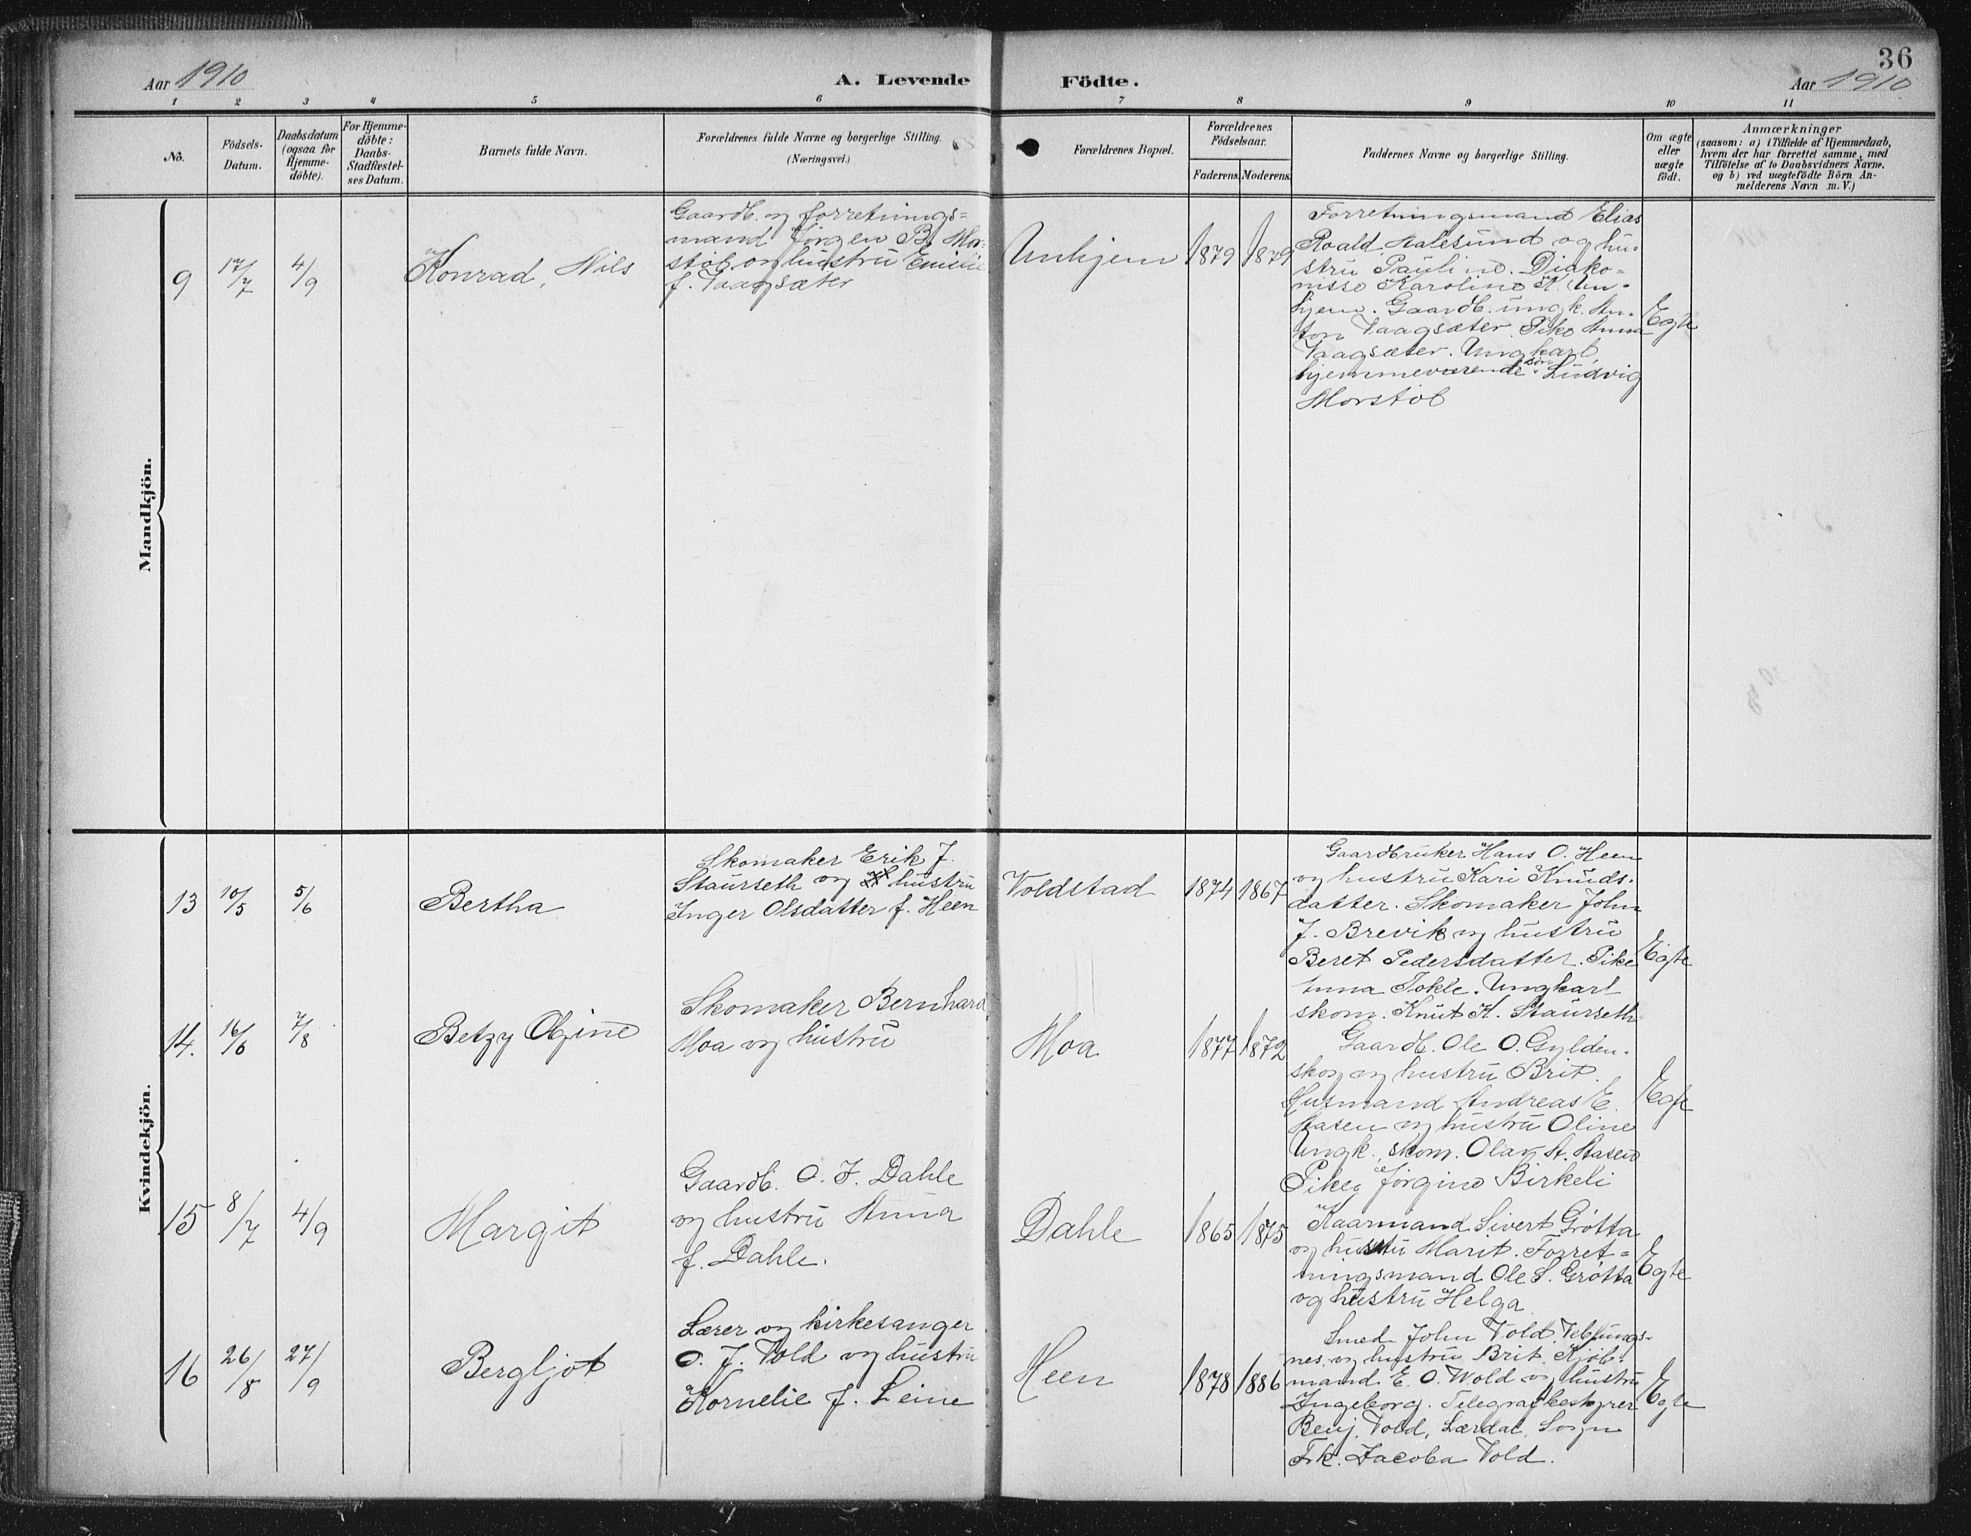 36
Aar 1910
A. Levende
Födte.
Aar 1910
1 2 3 4 5 6 7 8 9 10 11
No.
Födsels-
Datum.
Daabsdatum
(ogsaa for
Hjemme-
döbte).
For Hjemme-
döbte:
Daabs-
Stadfæstel-
ses Datum.
Barnets fulde Navn.
Forældrenes fulde Navne og borgerlige Stilling.
(Næringsvei.)
Forældrenes Bopæl.
Forældrenes
Födselsaar.
Faderens. Moderens.
Faddernes Navne og borgerlige Stilling.
Om ægte
eller
uægte
födt.
Anmærkninger
(saasom: a) i Tilfælde af Hjemmedaab,
hvem der har forrettet samme, med
Tilföielse af to Daabsvidners Navne.
og b) ved uægtefödte Börn An-
melderens Navn m. V.)
Mandkjön.
9
17/7
4/9
Konrad, Nils
Gaardb. og forretnings=
mand Jörgen B. Mor-
stöl og hustru Emilie
f. Vaagsæter
Unhjem
1879
1879
Forretningsmand Elias
Roald Aalesund og hu-
stru Pauline. Diako-
nisse Karoline K. Un-
hjem. Gaardb. ungk. An-
ton Vaagsæter. Pike Anna
Vaagsæter. Ungkarl,
hjemmeværende sön Ludvig
Morstöl
Egte
Kvindekjön.
13
10/5
5/6
Bertha
Skomaker Erik J.
Staurseth og hustru
Inger Olsdatter f. Heen
Voldstad
1874
1867
Gaardbruker Hans O. Heen
og hustru Kari Knuds-
datter. Skomaker John
J. Brevik og hustru
Beret Pedersdatter. Pike
Anna Tokle. Ungkarl
skom. Knut K. Staurseth
Egte
14.
16/6
7/8
Betzy Olgine
Skomaker Bernhard
Moa og hustru
Moa
1877
1872
Gaardb. Ole O. Gylden-
skog og hustru Brit.
Husmand Andreas E.
Aasen og hustru Oline
Ungk. skom. Olav A. Aasen
Pike Jörgine Birkeli
Egte
15
8/7
4/9
Margit
Gaardb. O. J. Dahle
og hustru Anna
f. Dahle.
Dahle
1865
1875
Kaarmand Sivert Grötta
og hustru Marit. Forret=
ningsmand Ole S. Grötta
og hustru Helga
Egte
16
26/8
27/9
Bergljot
Lærer og kirkesanger
O. J. Vold og hustru
Kornelie f. Leine
Heen
1878
1886
Smed John Vold, Veblungs-
nes og hustru Brit. Kjöb-
mand E. O. Wold og hustru
Ingeborg. Telegrafbestyrer
Benj. Vold, Lærdal, Sogn
Frk. Jacoba Vold.
Egte